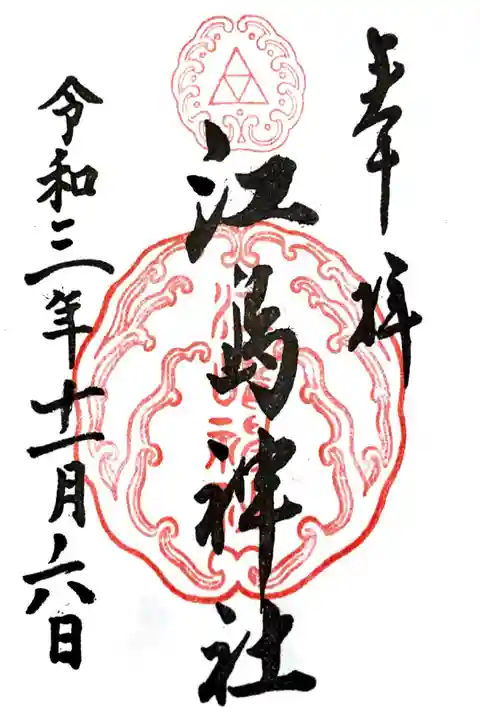 奉拝
江島神社
令和三年十一月六日